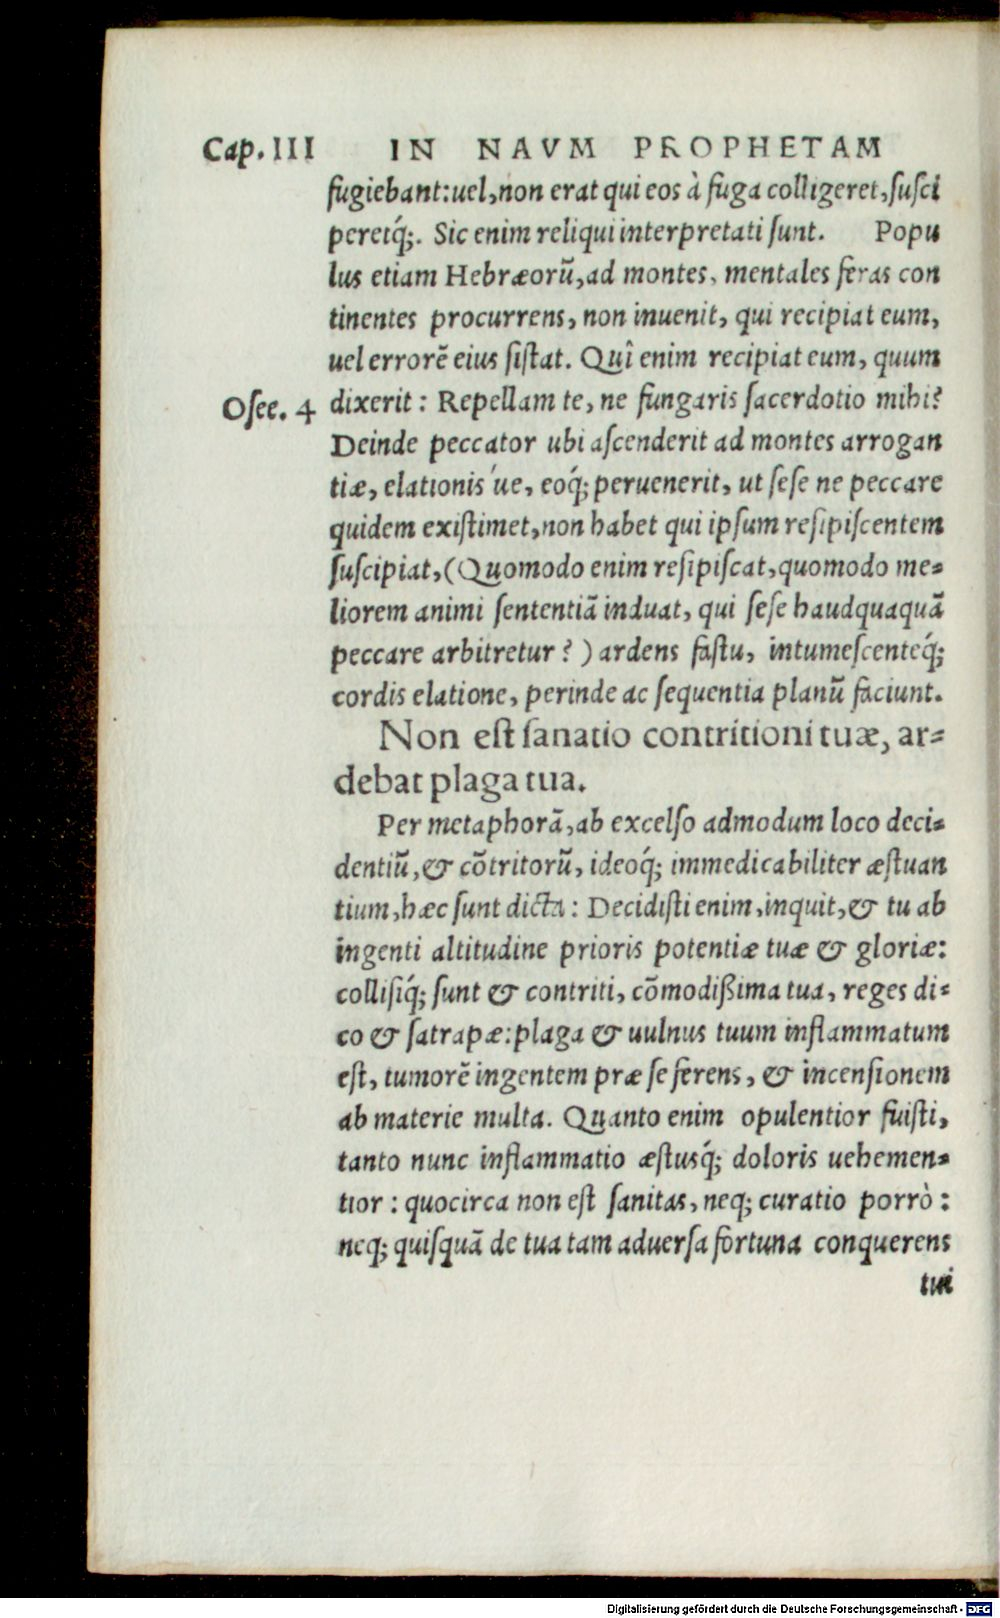 Cap. III IN NAVM PROPHETAM
fugiebant: uel, non erat qui eos à fuga colligeret, ſuſci
peretq́;. Sic enim reliqui interpretati ſunt. Popu
lus etiam Hebræorũ, ad montes, mentales feras con
tinentes procurrens, non inuenit, qui recipiat eum,
uel errorẽ eius ſiſtat. Quî enim recipiat eum, quum
Oſee. 4 dixerit: Repellam te, ne fungaris ſacerdotio mihi?
Deinde peccator ubi aſcenderit ad montes arrogan
tiæ, elationis ́ue, eoq́; peruenerit, ut ſeſe ne peccare
quidem exiſtimet, non habet qui ipſum reſipiſcentem
ſuſcipiat, (Quomodo enim reſipiſcat, quomodo me-
liorem animi ſententiã induat, qui ſeſe haudquaquã
peccare arbitretur?) ardens faſtu, intumeſcenteq́;
cordis elatione, perinde ac ſequentia planũ faciunt.
Non eſt ſanatio contritioni tuæ, ar-
debat plaga tua.
Per metaphorã, ab excelſo admodum loco deci-
dentiũ, & cõtritorũ, ideoq́; immedicabiliter æſtuan
tium, hæc ſunt dicta: Decidiſti enim, inquit, & tu ab
ingenti altitudine prioris potentiæ tuæ & gloriæ:
colliſiq́; ſunt & contriti, cõmodißima tua, reges di-
co & ſatrapæ: plaga & uulnus tuum inflammatum
eſt, tumorẽ ingentem præ ſe ferens, & incenſionem
ab materie multa. Quanto enim opulentior fuiſti,
tanto nunc inflammatio æſtusq́; doloris uehemen-
tior: quocirca non eſt ſanitas, neq; curatio porrò:
neq; quiſquã de tua tam aduerſa fortuna conquerens
tui
Digitalisierung gefördert durch die Deutsche Forschungsgemeinschaft - DFG